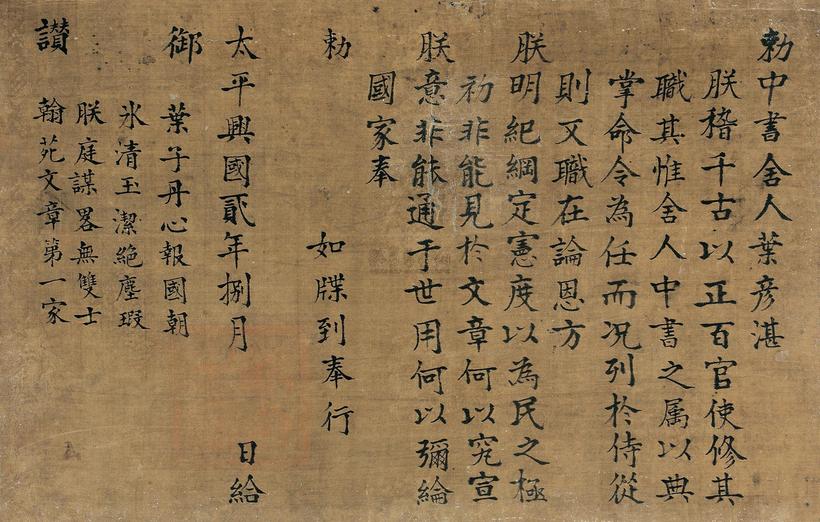 勅中書舍人葉彦湛
朕稽千古以正百官使修其
職其惟舍人中書之属以典
掌命令為任而况列於侍從
則又職在論恩方
朕明紀綱定憲度以為民之極
初非能見於文章何以究宣
朕意非能通于世用何以彌綸
國家奉
勅
如牒到奉行
太平興國貳年捌月
日給
御
葉子丹心報國朝
氷清玉潔絶塵瑕
朕庭謀畧無雙士
讃
翰苑文章第一家